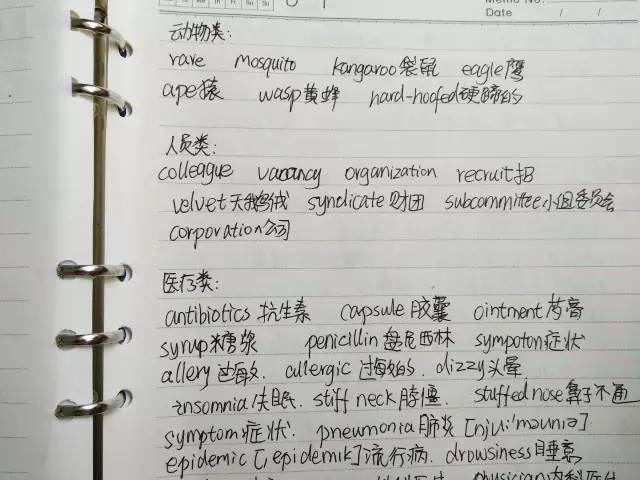 Memo No.
Date / /
动物类:
rare mosquito kangaroo袋鼠 eagle鹰
ape猿 wasp黄蜂 hard-hoofed硬蹄的
人员类:
colleague vacancy organization recruit招
velvet天鹅绒 syndicate财团 subcommittee小组委员会
corporation公司
医疗类:
antibiotics抗生素 capsule胶囊 ointment药膏
syrup糖浆 penicillin盘尼西林 sympoton症状
allery过敏. allergic过敏的. dizzy头晕
insomnia失眠. stiff neck脖僵. stuffed nose鼻子不通
symptom症状. pneumonia肺炎[njuːˈməunia]
epidemic[,epidemik]流行病. drowsiness睡意
physician内科医生